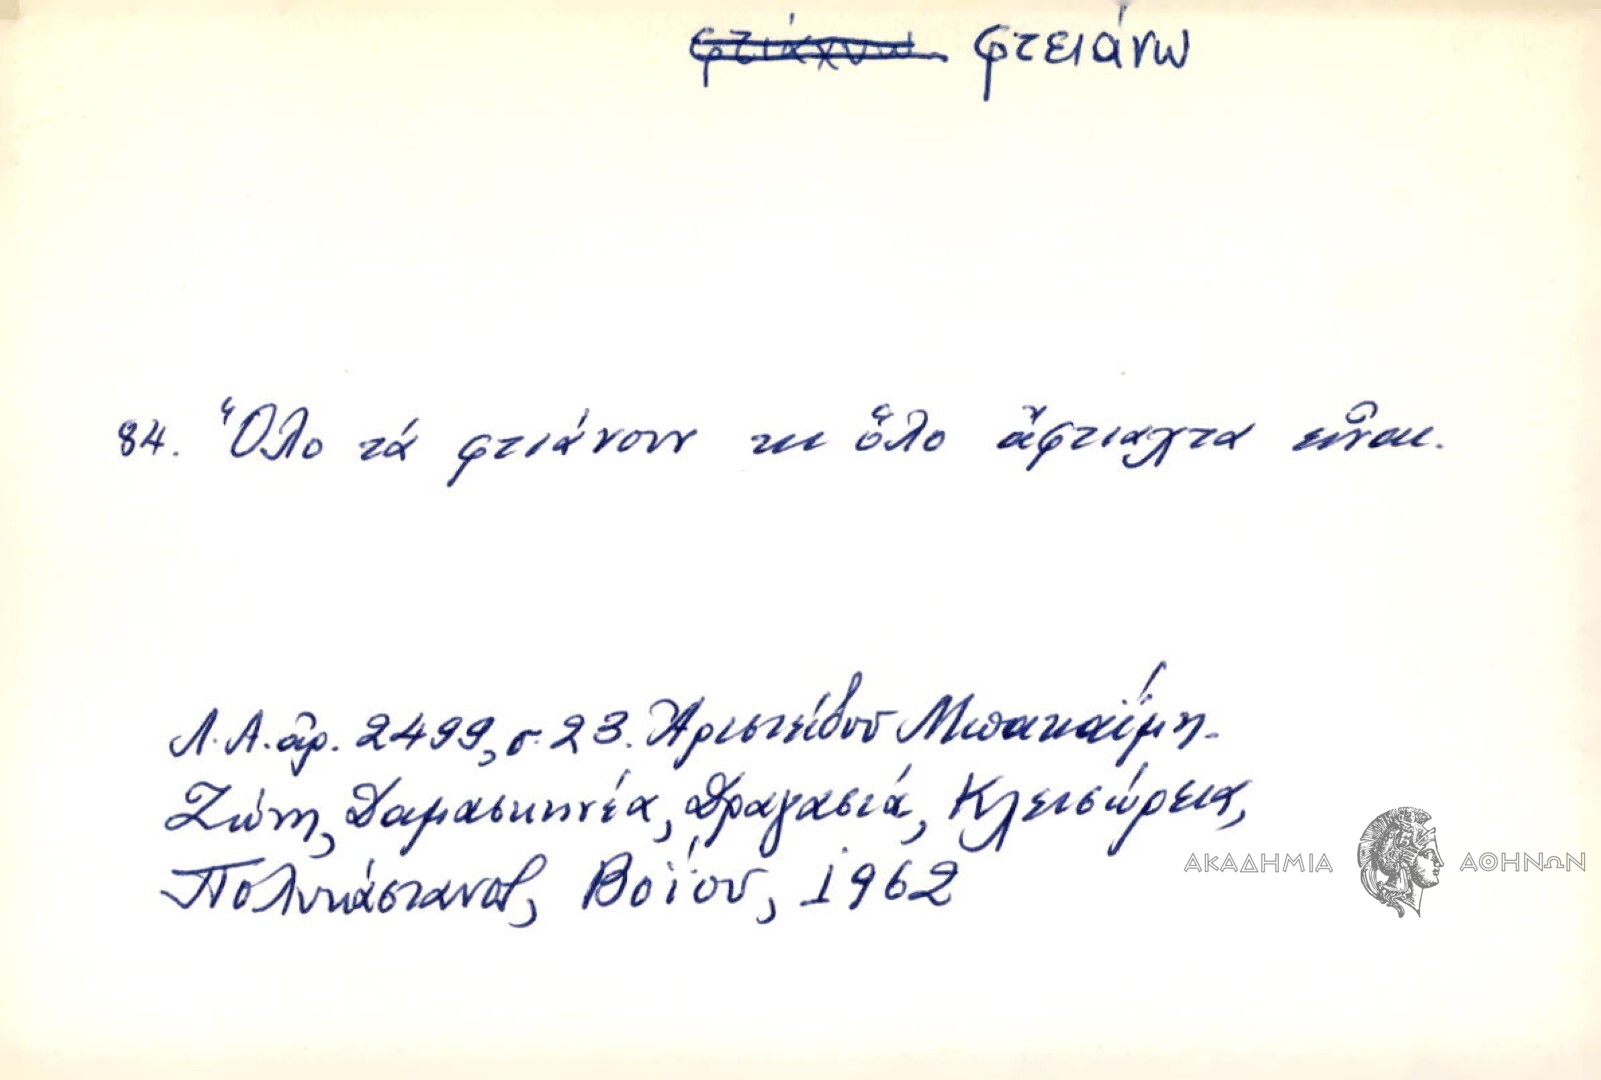 φτιάχνω φτειάνω
84. Ὅλο τά φτιάνουν κι ὅλο ἄφτιαχτα εἶναι.
Λ.Α. ἀρ. 2499, σ. 23. Ἀριστείδου Μπακαΐμη.
Ζώνη, Δαμασκηνέα, Δραγασιά, Κλεισώρεια,
Πολυκάστανον, Βοΐου, 1962
ΑΚΑΔΗΜΙΑ ΑΘΗΝΩΝ